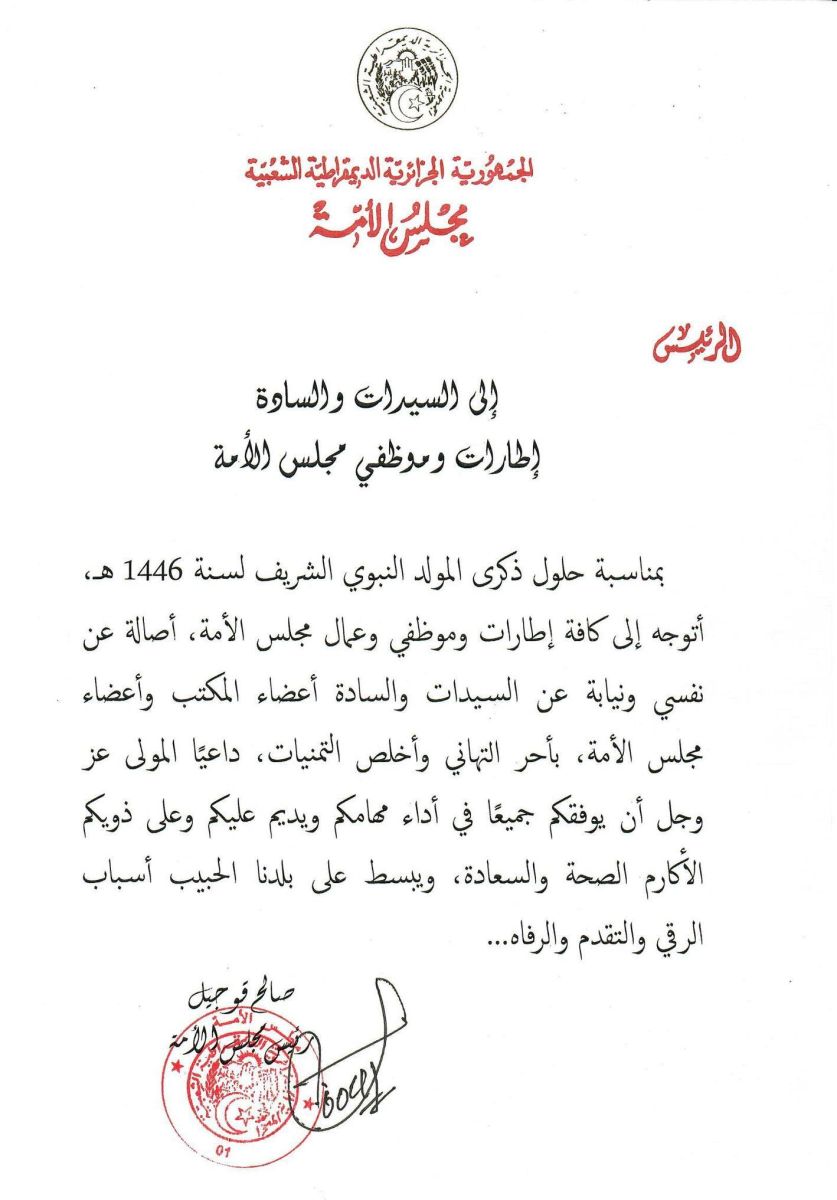 الجمهورية الجزائرية الديمقراطية الشعبية
مجلس الأمة
الرئيس
إلى السيدات والسادة
إطارات وموظفي مجلس الأمة
بمناسبة حلول ذكرى المولد النبوي الشريف لسنة 1446 هـ،
أتوجه إلى كافة إطارات وموظفي وعمال مجلس الأمة، أصالة عن
نفسي ونيابة عن السيدات والسادة أعضاء المكتب وأعضاء
مجلس الأمة، بأحر التهاني وأخلص التمنيات، داعيًا المولى عز
وجل أن يوفقكم جميعًا في أداء مهامكم ويديم عليكم وعلى ذويكم
الأكارم الصحة والسعادة، ويبسط على بلدنا الحبيب أسباب
الرقي والتقدم والرفاه...
صالح قوجيل
رئيس مجلس الأمة
مجلس الأمة
01